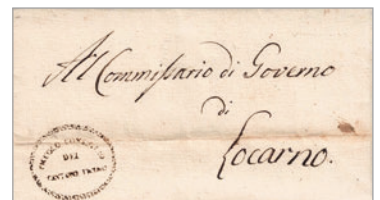 Al Commissario di Governo
di
Locarno.
PICCOLO CONSIGLIO
DEL
CANTONE TICINO